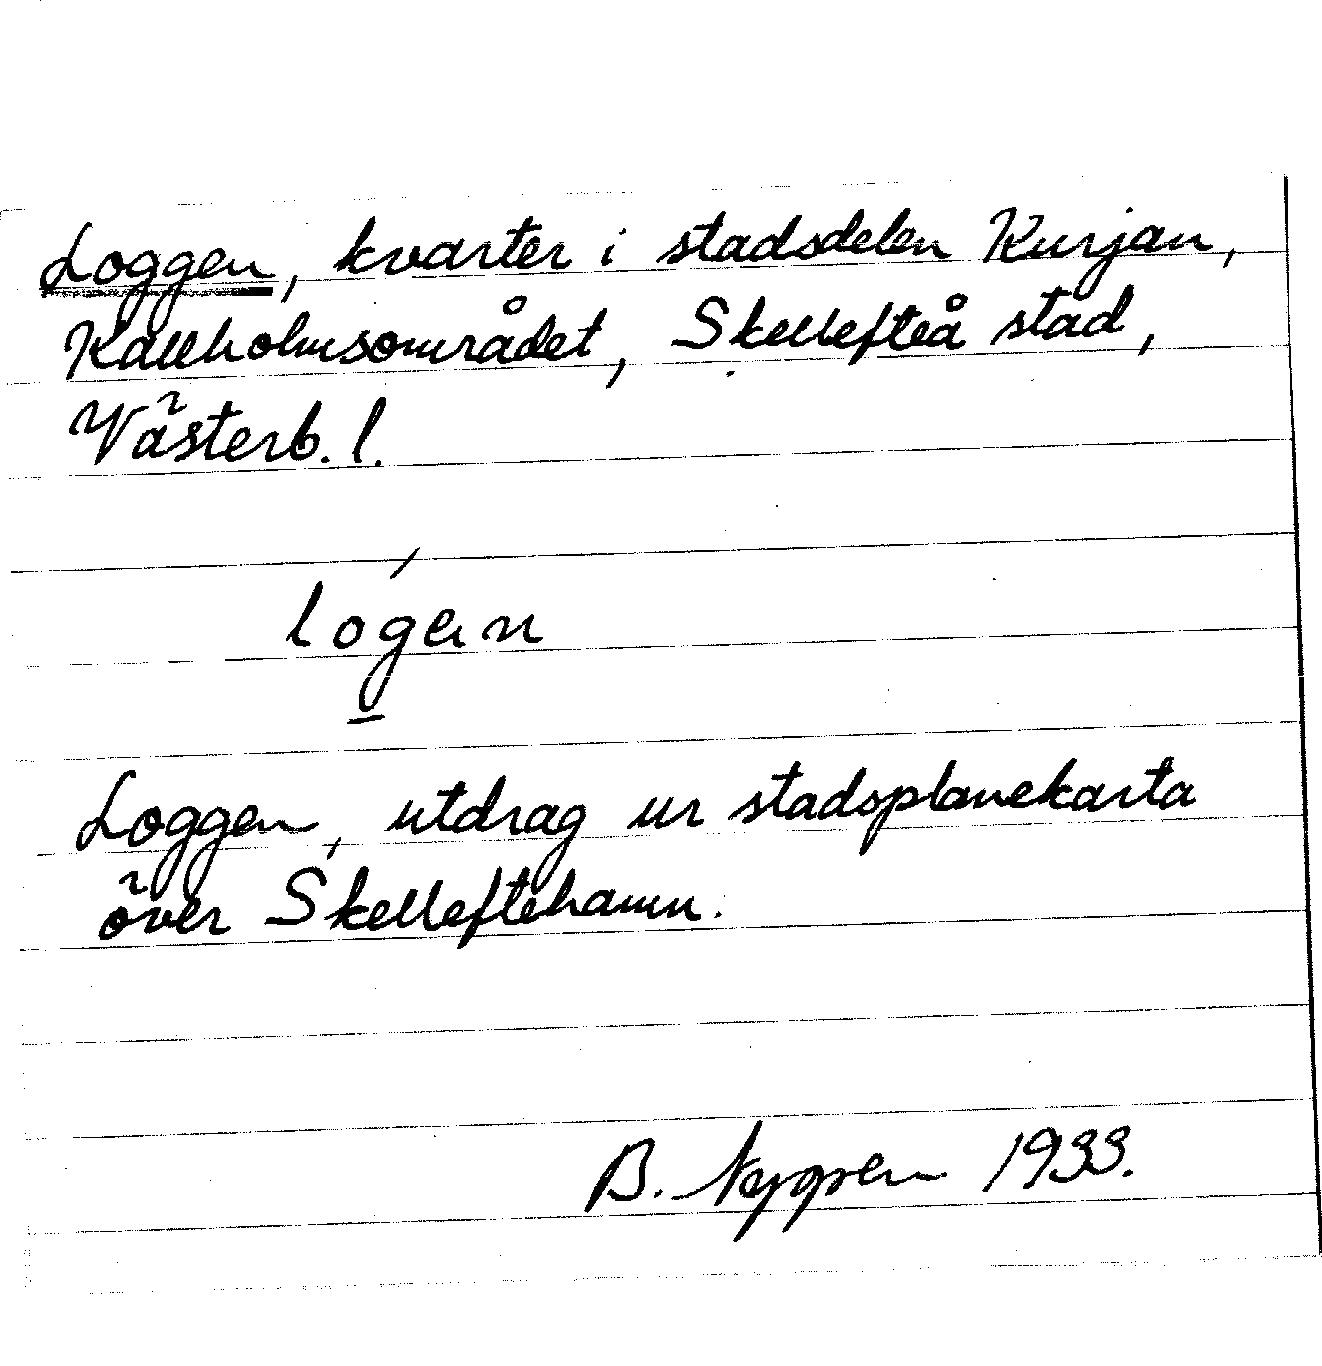 Loggen, kvarter i stadsdelen Kurjan,
Kallholmsområdet, Skellefteå stad,
Västerb. l.
lógän
Loggen, utdrag ur stadsplanekarta
över Skelleftehamn.
B. 1933.